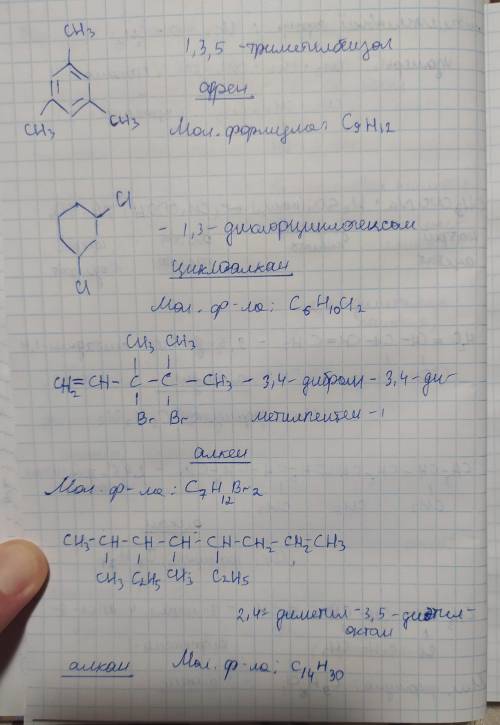 CH3
1,3,5 - триметилбензол
арен
CH3 CH3
Мол. формула: C9H12
Cl
- 1,3 - дихлорциклогексан
циклоалкан
Cl
Мол. ф-ла: C6H10Cl2
CH3 CH3
CH2=CH - C - C - CH3 - 3,4 - дибром - 3,4 - ди-
Br Br метилпентен - 1
алкен
Мол. ф-ла: C7H12Br2
CH3-CH-CH-CH-CH-CH2-CH2-CH3
CH3 C2H5 CH3 C2H5
2,4- диметил - 3,5 - диэтил-
октан
алкан Мол. ф-ла: C14H30